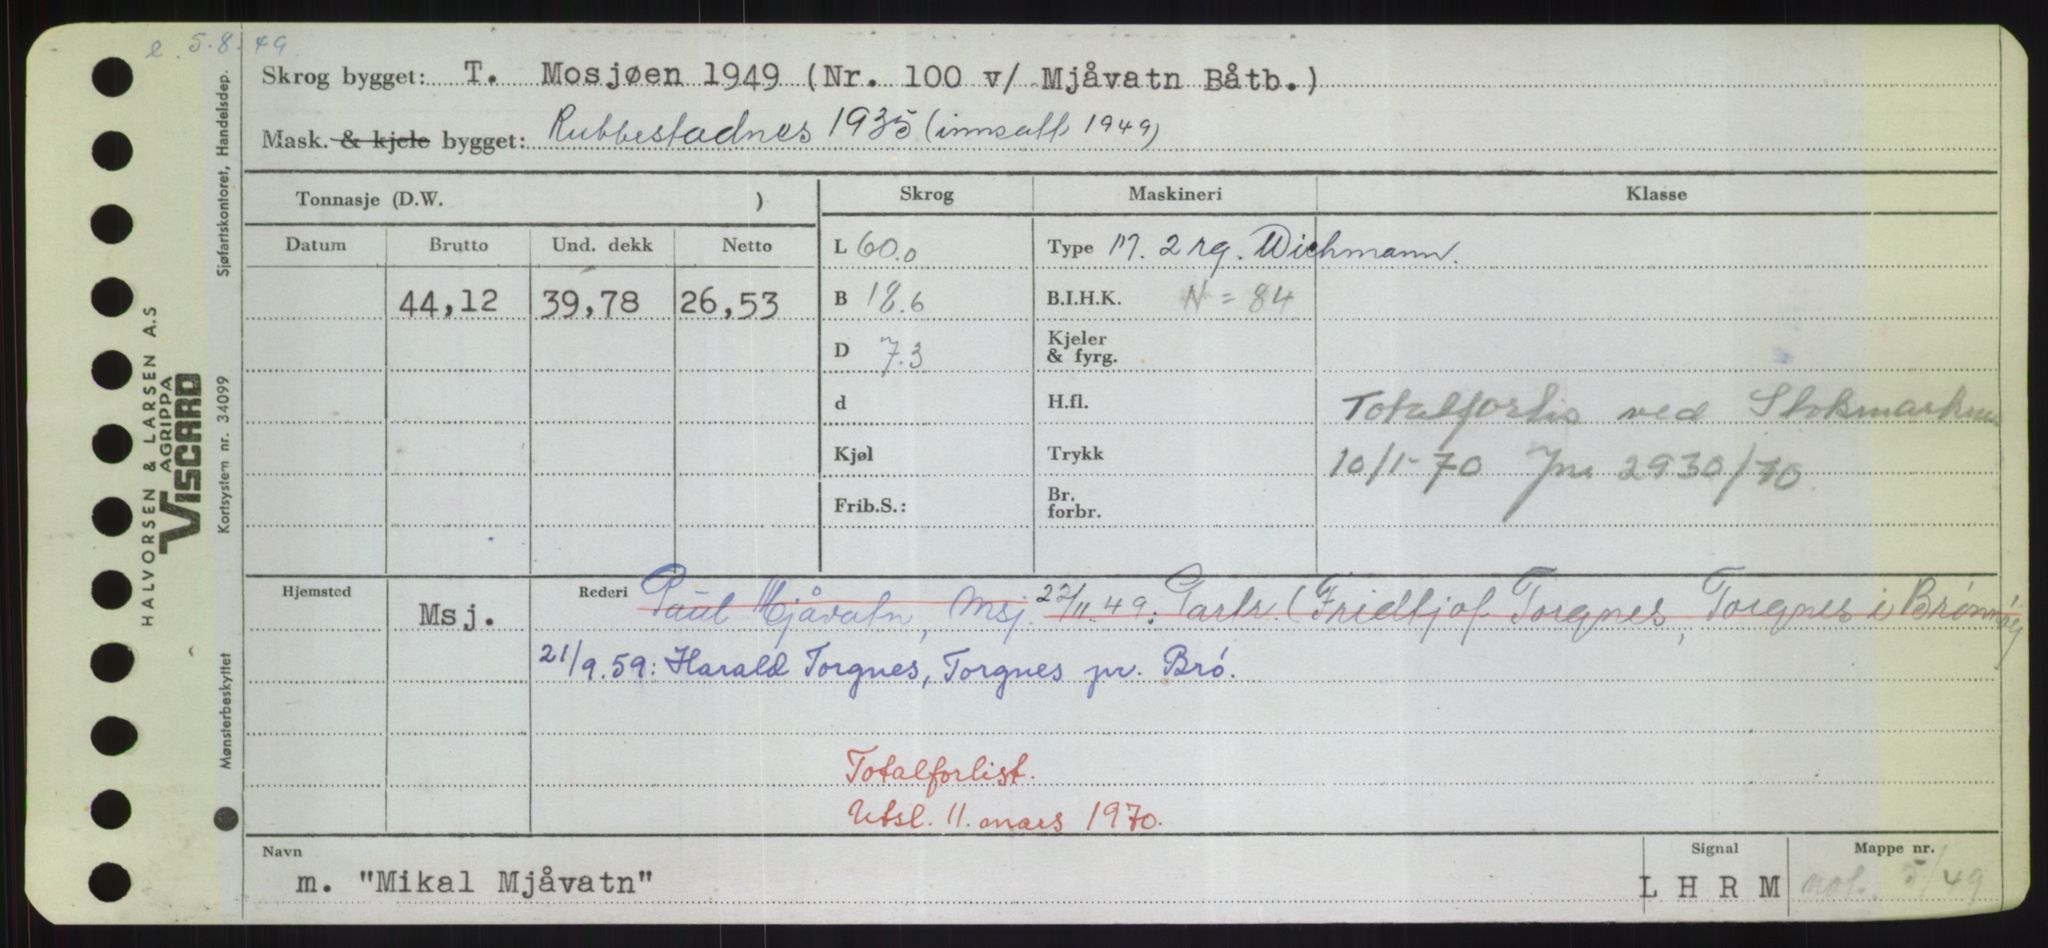 e 5.8.49
Skrog bygget: T. Mosjøen 1949 (Nr. 100 v/ Mjåvatn Båtb.)
Mask. & kjele bygget: Rubbestadnes 1935 (innsatt 1949)
Tonnasje (D.W. )
Skrog
Maskineri
Klasse
Datum Brutto Und. dekk Netto
44,12 39,78 26,53
L 60.0
B 18.6
D 7.3
d
Kjøl
Frib.S.:
Type M. 2 sg. Wichmann.
B.I.H.K. N = 84
Kjeler
& fyrg.
H.fl.
Trykk
Br.
forbr.
Totalforlis ved Stokmarknes
10/1-70 Jnr 2930/70
Hjemsted
Msj.
Rederi Paul Mjåvatn, Msj. 22/11.49: Partr. (Fridtjof Torgnes, Torgnes i Brønnøy
21/9.59: Harald Torgnes, Torgnes pr. Brø.
Totalforlist.
Utsl. 11. mars 1970.
Navn
m. "Mikal Mjåvatn"
Signal
L H R M
Mappe nr.
not. 5/49
HALVORSEN & LARSEN A.S
AGRIPPA
VISCARD
Sjøfartskontoret, Handelsdep.
Kortsystem nr. 34099
Mønsterbeskyttet